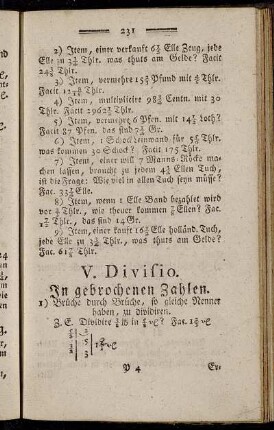 231
2) Item, einer verkauft 6 Elle Zeug, jede
Elle zu 3 Thlr. was thuts am Gelde? Facit
24 Thlr.
3) Item, vermehre 15 Pfund mit Thlr.
Facit Thlr.
4) Item, multiplicire 98 Centn. mit 30
Thlr. Facit Thlr.
5) Item, vermehre 6 Pfen. mit 14 loth?
Facit 87 Pfen. das sind 7 Gr.
6) Item, 1 Schock Leinwand für 5 Thlr.
was kommen 30 Schock? Facit 175 Thlr.
7) Item, einer will 7 Manns-Röcke ma-
chen lassen, braucht zu jedem 4 Ellen Tuch,
ist die Frage: Wie viel in allen Tuch seyn müsse?
Fac. 33 Elle.
8) Item, wenn 1 Elle Band bezahlet wird
vor Thlr., wie theuer kommen Ellen? Fac.
Thlr., das sind 14 Gr.
9) Item, einer kauft 16 Elle holländ. Tuch,
jede Elle zu 3 Thlr., was thuts am Gelde?
Fac. 61 Thlr.
V. Divisio.
In gebrochenen Zahlen.
1) Brüche durch Brüche, so gleiche Nenner
haben, zu dividiren.
Z. E. Dividire in ? Fac.
3
5
3
P 4